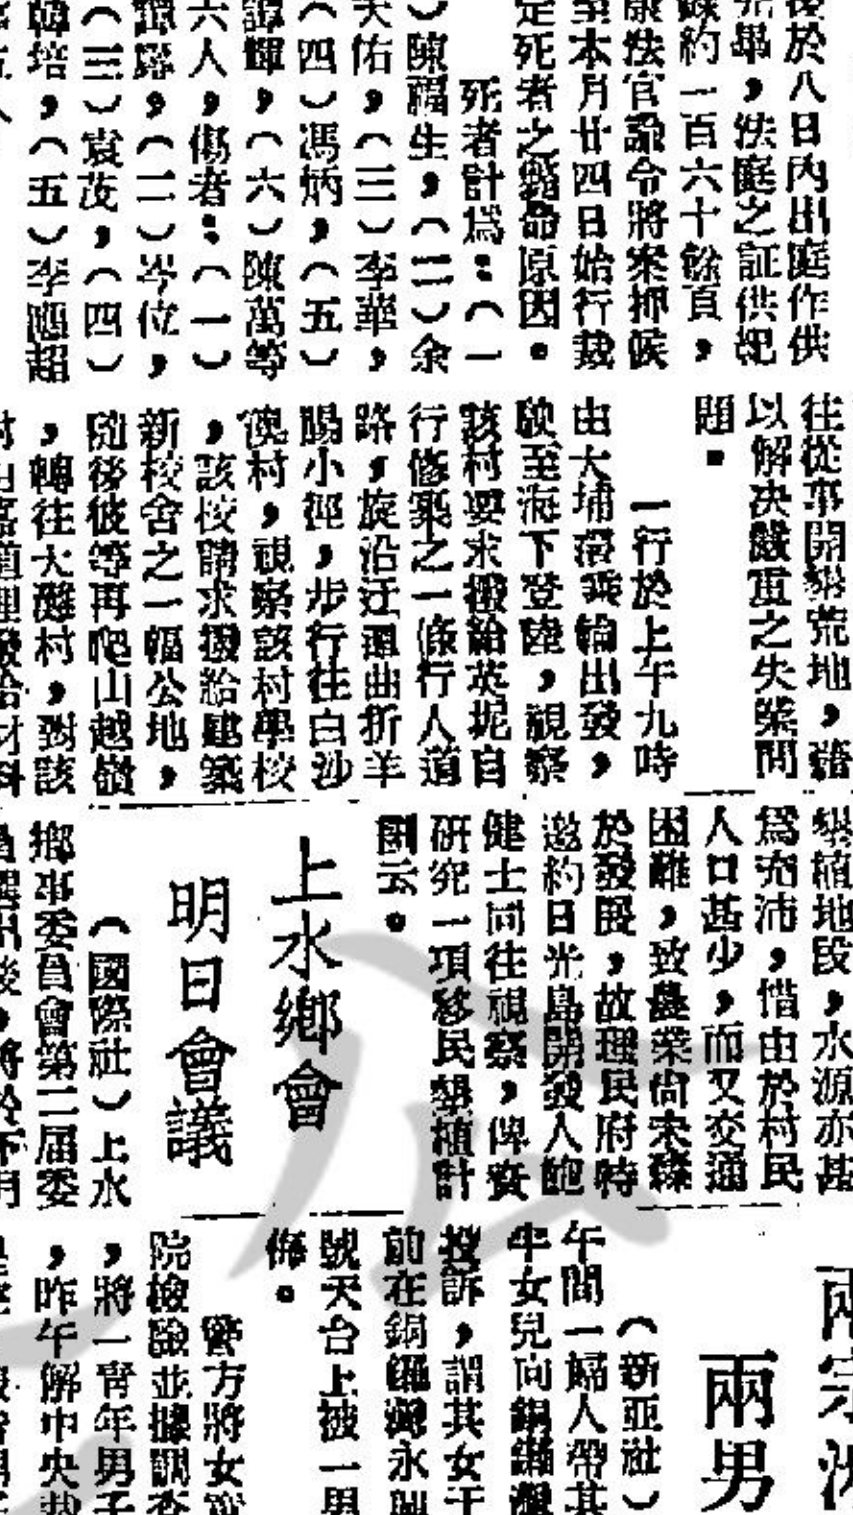 後於八日內出庭作供
完畢,法庭之証供把
錄約一百六十餘頁,
法官諭令將案押候
至本月廿四日始行裁
定死者之斃命原因。
死者計爲:(一
)陳福生,(二)余
天佑,(三)李華,
(四)馮炳,(五)
譚輝,(六)陳萬等
六人,傷者:(一)
譚路,(二)岑位,
(三)袁茂,(四)
韓培,(五)李應超
往從事開墾荒地,藉
以解决嚴重之失業問
題。
一行於上午九時
由大埔滘乘輪出發,
駛至海下登陸,視察
該村要求撥給英坭自
行修築之一條行人道
路,旋沿迂迴曲折羊
腸小徑,步行往白沙
澳村,視察該村學校
,該校請求撥給建築
新校舍之一幅公地,
隨後彼等再爬山越嶺
,轉往大灘村,對該
墾植地段,水源亦甚
爲充沛,惜由於村民
人口甚少,而又交通
困難,致農業尙未臻
於發展,故理民府特
邀約日光島開發人鮑
健士同往視察,俾資
研究一項移民墾植計
劃云。
上水鄉會
明日會議
(國際社)上水
鄉事委員會第二屆委
兩宗
兩男
(新亞社)
午間一婦人帶其
年女兒向銅鑼灣
投訴,謂其女于
前在銅鑼灣永興
號天台上被一男
侮。
警方將女童
院檢驗並據調查
,將一青年男子
,昨午解中央裁